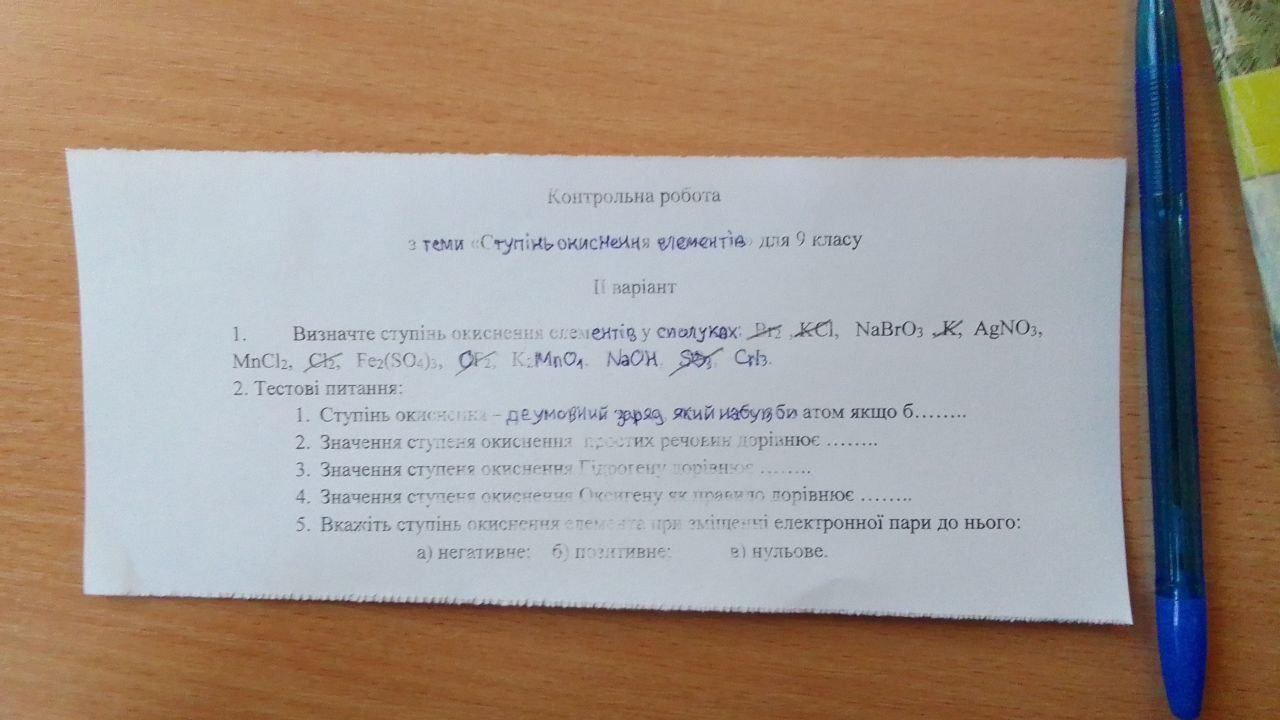 Контрольна робота
з теми «Ступінь окиснення елементів» для 9 класу
ІІ варіант
1. Визначте ступінь окиснення елементів у сполуках: Br₂, KCl, NaBrO₃, K, AgNO₃,
MnCl₂, Cl₂, Fe₂(SO₄)₃, OF₂, K₂MnO₄, NaOH, SO₃,
2. Тестові питання:
1. Ступінь окиснення – це умовний заряд, який набув би атом якщо б……..
2. Значення ступеня окиснення простих речовин дорівнює ……..
3. Значення ступеня окиснення Гідрогену дорівнює ……..
4. Значення ступеня окиснення Оксигену як правило дорівнює ……..
5. Вкажіть ступінь окиснення елемента при зміщенні електронної пари до нього:
а) негативне; б) позитивне; в) нульове.